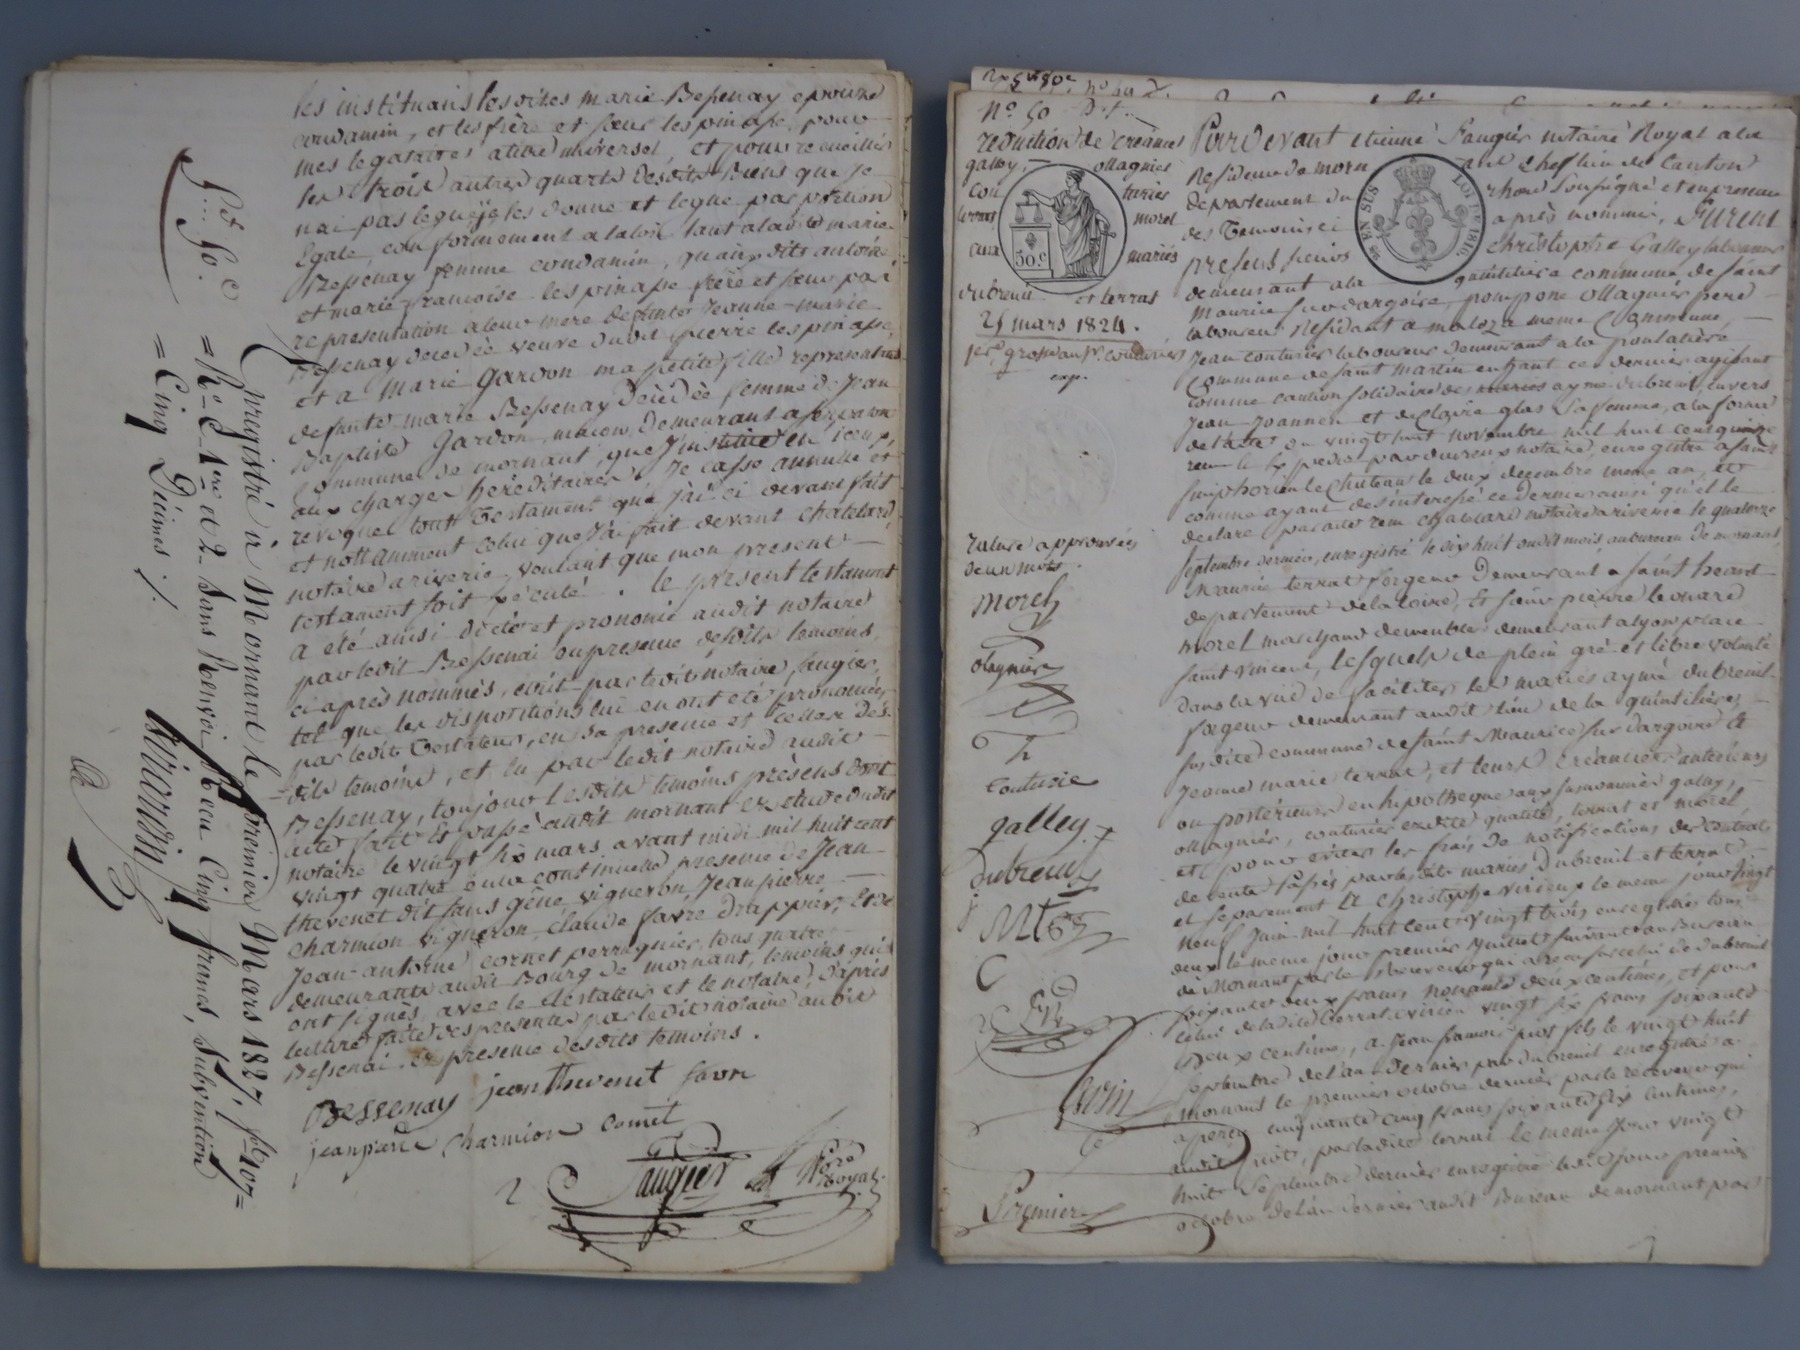 les instituans lesdites marie Bessenay epouze
condamin, et les frère et sœur lespinasse, pour
mes legataires atitre universel, et pour recueillir
les trois autres quarts desdits Biens que je
nai pas legué, je les donne et legue par portion
Egale, conformement a la loi, tant a ladite marie
Bessenay femme condamin, quauxdits antoine
et marie françoise lespinasse frère et sœur par
representation a leur mere defunte Jeanne-marie
Bessenay decedée veuve dudit pierre lespinasse,
et a marie Gardon ma petite fille representant
defunte marie Bessenay décédée femme de Jean
Baptiste Gardon, maçon, demeurant a
Commune de mornant, que J'institue en iceux,
aux charges héréditaires. Je casse annulle et
revoque tout Testament que j'ai ci devant fait
et nottamment celui que J'ai fait devant chatelard,
notaire a riverie, voulant que mon present
testament soit éxécuté. le present testament
a été ainsi dicté et prononcé audit notaire
par ledit Bessenai en presence desdits temoins,
ci après nommés, écrit par ledit notaire, faugier,
tel que les dispositions lui en ont été prononcées
par ledit Testateur, en sa presence et celle desdits
temoins, et lu par ledit notaire audit
Bessenay, toujours lesdits temoins présens dont
acte fait et passé audit mornant en etude dudit
notaire le vingt six mars avant midi mil huit cent
vingt quatre en la continuelle presence de Jean
thevenet dit sans gêne vigneron, Jean pierre
charmion vigneron, claude favre drappier, et
Jean-antoine cornet perruquier, tous quatre
demeurants audit Bourg de mornant, temoins qui
ont signés avec le testateur et le notaire, d'après
lecture faite des presentes par ledit notaire audit
Bessenai, en presence desdits temoins.
Bessenay jean thevenet favre
jean pierre Charmion Cornet
faugier Nre royal
Enregistré à Mornant le premier Mars 1827, fo 107
Ro C 1ere et 2 sans Renvoi Reçu Cinq francs, subvention
= Cinq Décimes ./.
No 50
reduction de creances
galley, ollagnier
cou turier
terrat morel
aux mariés
dubreuil et terrat
25 mars 1824.
rature approuvée
de un mots.
Morel
olagnier
Couturie
galley
Dubreuil
Premier
50.c
EN SUS
LOI DE 1816.
Pardevant etienne faugier notaire Royal a la
Residence de mornant chef lieu de Canton
departement du rhone soussigné et en presence
des Temoins ci après nommés, furent
presens sieurs christophe Galley laboureur
demeurant a la quintilière commune de saint
Maurice sur dargoire, pompone ollagnier pere
laboureur Residant a même Commune,
Jean couturier laboureur demeurant a la poulatière
Commune de saint martin en haut ce dernier agissant
comme caution solidaire des mariés aymé dubreuil, envers
Jean Joannon et de Clavie glas sa femme, a la forme
de l'acte du vingt huit novembre mil huit cent quinze
simphorien le Chateau le deux decembre meme an, et
comme ayant desinteressé ce dernier ainsi qu'il le
declare par acte reçu chatelard notaire a riverie le quatorze
septembre dernier, enregistré le dix huit audit mois au bureau de mornant,
Maurice terrat forgeur demeurant a saint heand
departement de la loire, et sieur pierre leonard
morel marchand de meubles demeurant a lyon place
saint vincent, lesquels de plein gré et libre volonté
dans la vue de faciliter les mariés aymé dubreuil
forgeur demeurant audit lieu de la quintilière
susdite commune de saint Maurice sur dargoire et
Jeanne marie terrat, et leurs créanciers antérieurs
ou postérieurs en hipotheque aux susnommés galley,
ollagnier, couturier endite qualité, terrat et morel,
et pour eviter les frais de notifications des contrats
de vente passés par lesdits mariés dubreuil et terrat
et separement a christophe virieux le meme jour vingt
neuf Juin mil huit cent vingt trois enregistrés tous
deux le meme jour premier Juillet suivant au bureau
de Mornant par le Receveur qui a reçu sur celui de dubreuil
soixante deux francs nonante deux centimes, et pour
celui de ladite terrat a virieux vingt six francs soixante
deux centimes, a Jean francois fils le vingt huit
septembre de l'an dernier par dubreuil enregistré a
mornant le premier octobre dernier par le receveur qui
a perçu cinquante cinq francs soixante six centimes,
audit , par ladite terrat le meme jour vingt
huit septembre dernier enregistré ledit jour premier
octobre de l'an dernier audit Bureau de mornant par